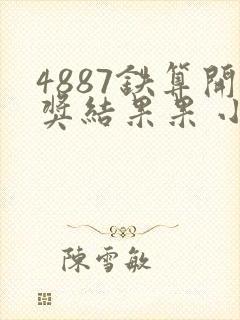 4887鉄算開
奖結果果小
陳雪敏